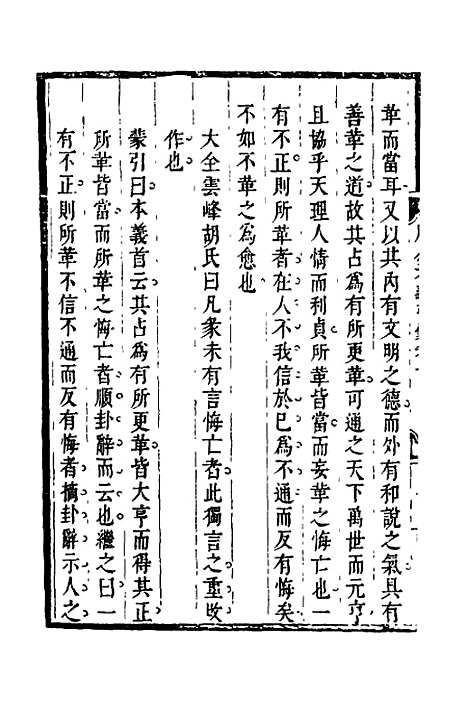 革而當耳又以其內有文明之德而外有和說之氣具有
善革之道故其占爲有所更革可通之天下萬世而元亨
且協乎天理人情而利貞所革皆當而妄革之悔亡也一
有不正則所革者在人不我信於已爲不通而反有悔矣
不如不革之爲愈也
大全雲峰胡氏曰凡彖未有言悔亡者此獨言之重改
作也
蒙引曰本義首云其占爲有所更革皆大亨而得其正
所革皆當而所革之悔亡者順卦辭而云也繼之曰一
有不正則所革不信不通而反有悔者摘卦辭示人之